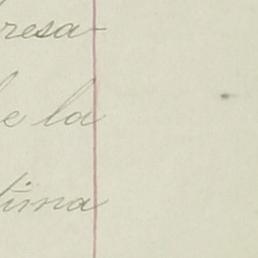 resa
e la
tima